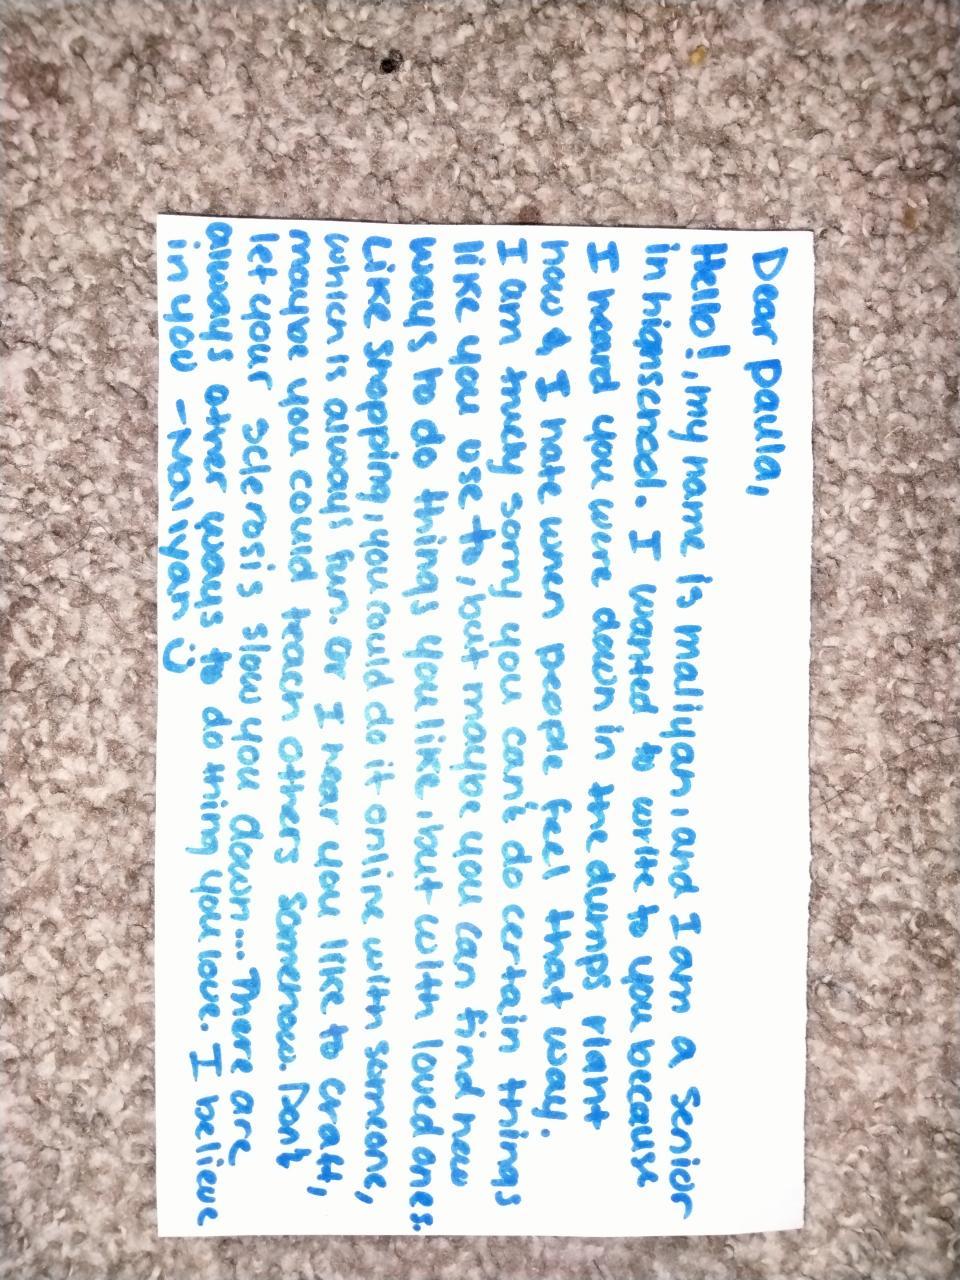 Dear paulla,
Hello!, my name is maliyan, and I am a senior
in highschool. I wanted to write to you because
I heard you were down in the dumps right
now & I hate when people feel that way.
I am truly sorry you can't do certain things
like you use to, but maybe you can find new
ways to do things you like, but with loved ones.
Like shopping, you could do it online with someone,
which is always fun. Or I hear you like to craft,
maybe you could teach others somehow. Don't
let your sclerosis slow you down.... There are
always other ways to do thing you love. I believe
in you -Maliyan :)